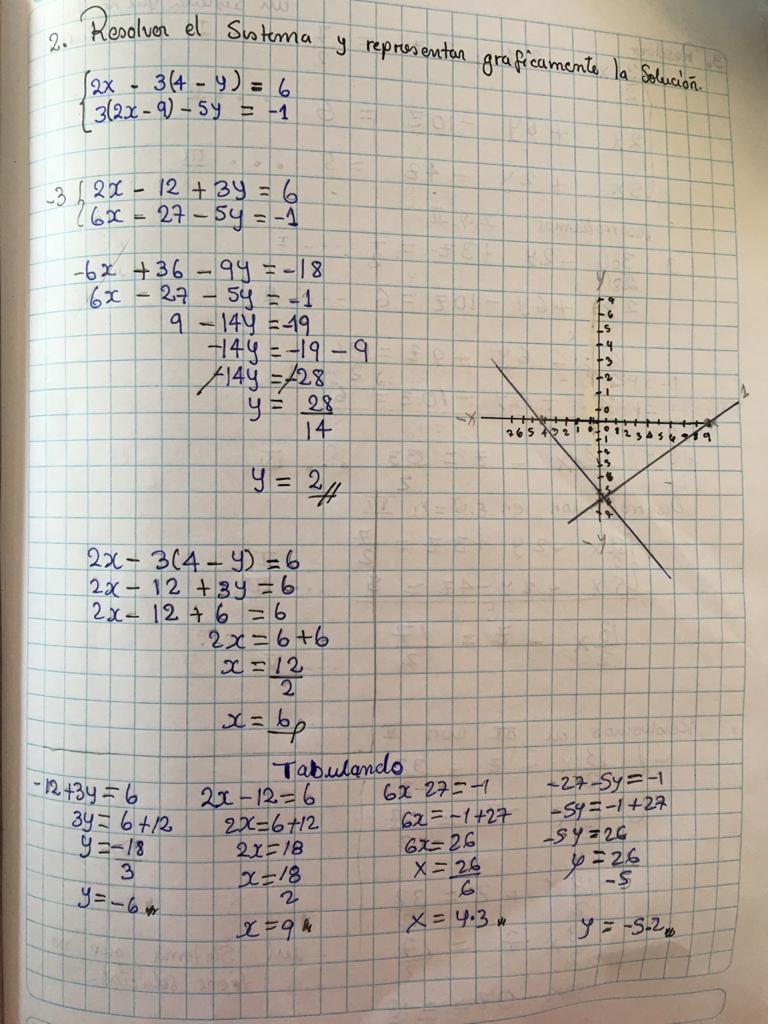 2. Resolver el Sistema y representar graficamente la Solución.
2x - 3(4 - y) = 6
3(2x - 9) - 5y = -1
-3 { 2x - 12 + 3y = 6
6x - 27 - 5y = -1
-6x + 36 - 9y = -18
6x - 27 - 5y = -1
9 - 14y = -19
-14y = -19 - 9
-14y = -28
y = 28/14
y = 2
2x - 3(4 - y) = 6
2x - 12 + 3y = 6
2x - 12 + 6 = 6
2x = 6 + 6
x = 12/2
x = 6
y
-x
1
-y
Tabulando
-12 + 3y = 6
3y = 6 + 12
y = -18/3
y = -6
2x - 12 = 6
2x = 6 + 12
2x = 18
x = 18/2
x = 9
6x 27 = -1
6x = -1 + 27
6x = 26
x = 26/6
x = 4.3
-27 - 5y = -1
-5y = -1 + 27
-5y = 26
y = 26/-5
y = -5.2